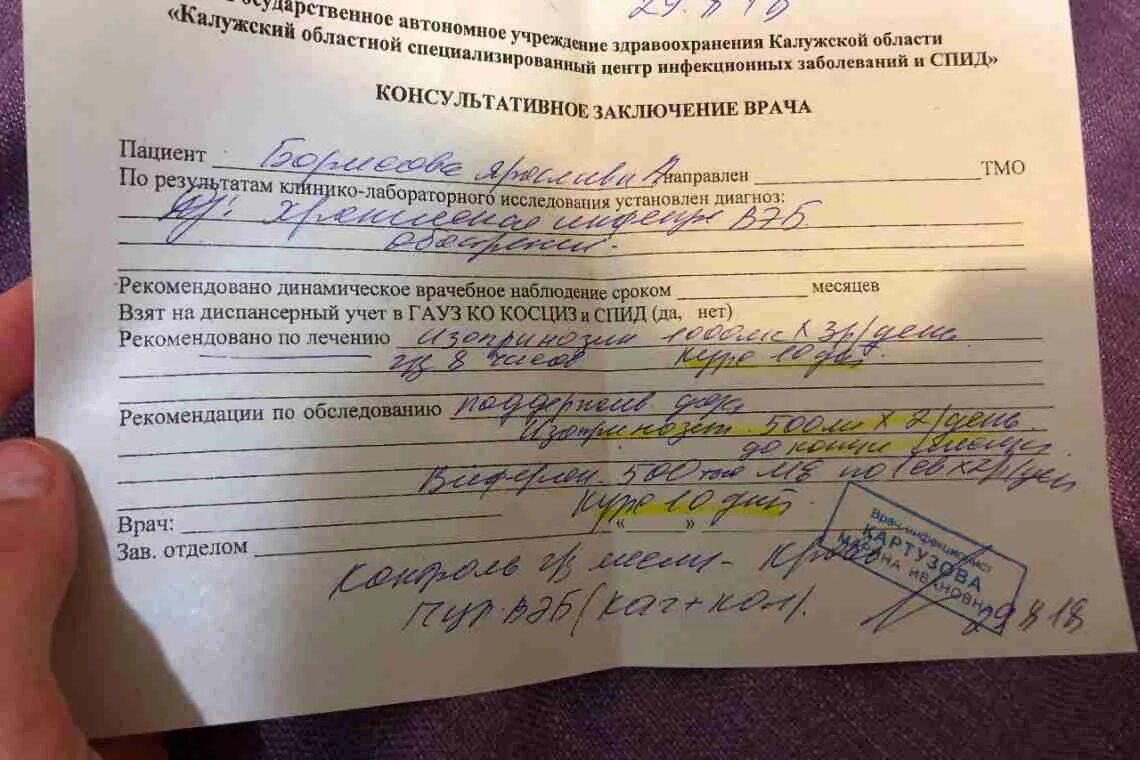 Государственное автономное учреждение здравоохранения Калужской области
«Калужский областной специализированный центр инфекционных заболеваний и СПИД»
КОНСУЛЬТАТИВНОЕ ЗАКЛЮЧЕНИЕ ВРАЧА
Пациент направлен ТМО
По результатам клинико-лабораторного исследования установлен диагноз:
Хроническая инфекция ВЭБ
обострение.
Рекомендовано динамическое врачебное наблюдение сроком месяцев
Взят на диспансерный учет в ГАУЗ КО КОСЦИЗ и СПИД (да, нет)
Рекомендовано по лечению 1000мг х 3р/день
ч/з 8 часов курс 10 дн
Рекомендации по обследованию
500мг х 2/день
до конца месяца
Виферон 500 тыс МЕ по 1св х 2р/день
Врач: курс 10 дн.
Зав. отделом « »
Контроль ч/з месяц - кровь
ПЦР ВЭБ (кач+кол).
Врач-инфекционист
КАРТУЗОВА
МАРИНА ИВАНОВНА